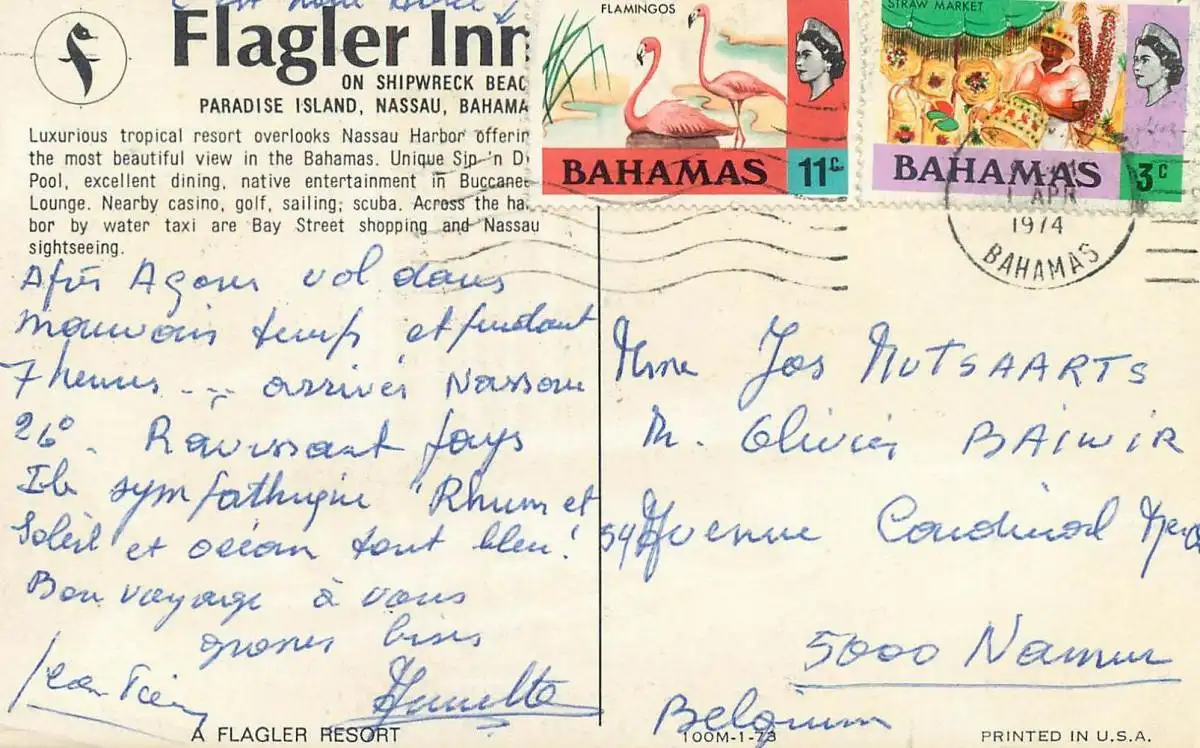 C'est notre hôtel
Flagler Inn
ON SHIPWRECK BEAC
PARADISE ISLAND, NASSAU, BAHAMA
Luxurious tropical resort overlooks Nassau Harbor offerin
the most beautiful view in the Bahamas. Unique Sip 'n Di
Pool, excellent dining, native entertainment in Buccanee
Lounge. Nearby casino, golf, sailing, scuba. Across the har
bor by water taxi are Bay Street shopping and Nassau
sightseeing.
FLAMINGOS
BAHAMAS 11c
STRAW MARKET
BAHAMAS 3c
1 APR
1974
BAHAMAS
Après Açores vol dans
mauvais temps et pendant
7 heures ... arrivés Nassau
26°. Ravissant pays
Ile sympathique Rhum et
Soleil et océan tout bleu!
Bon voyage à vous
grosses bises
Jean Pierre
A FLAGLER RESORT
Mme Jos MUTSAARTS
M. Olivier BAIWIR
54 Avenue Cardinal Merc
5000 Namur
Belgium
100M-1-73
PRINTED IN U.S.A.